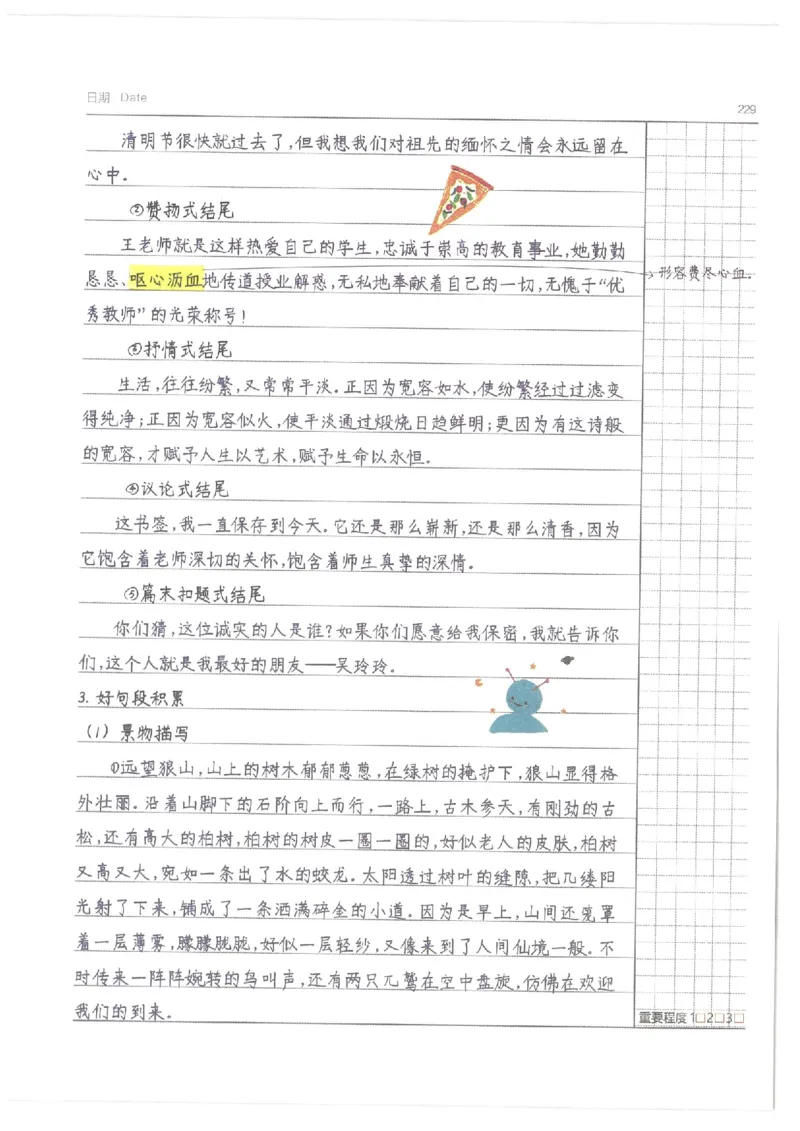 日期 Date
229
清明节很快就过去了,但我想我们对祖先的缅怀之情会永远留在
心中。
②赞扬式结尾
王老师就是这样热爱自己的学生,忠诚于崇高的教育事业,她勤勤
恳恳、呕心沥血地传道授业解惑,无私地奉献着自己的一切,无愧于“优
→形容费尽心血。
秀教师”的光荣称号!
③抒情式结尾
生活,往往纷繁,又常常平淡。正因为宽容如水,使纷繁经过过滤变
得纯净;正因为宽容似火,使平淡通过煅烧日趋鲜明;更因为有这诗般
的宽容,才赋予人生以艺术,赋予生命以永恒。
④议论式结尾
这书签,我一直保存到今天。它还是那么崭新,还是那么清香,因为
它饱含着老师深切的关怀,饱含着师生真挚的深情。
⑤篇末扣题式结尾
你们猜,这位诚实的人是谁?如果你们愿意给我保密,我就告诉你
们,这个人就是我最好的朋友——吴玲玲。
3. 好句段积累
(1) 景物描写
①远望狼山,山上的树木郁郁葱葱,在绿树的掩护下,狼山显得格
外壮丽。沿着山脚下的石阶向上而行,一路上,古木参天,有刚劲的古
松,还有高大的柏树,柏树的树皮一圈一圈的,好似老人的皮肤,柏树
又高又大,宛如一条出了水的蛟龙。太阳透过树叶的缝隙,把几缕阳
光射了下来,铺成了一条洒满碎金的小道。因为是早上,山间还笼罩
着一层薄雾,朦朦胧胧,好似一层轻纱,又像来到了人间仙境一般。不
时传来一阵阵婉转的鸟叫声,还有两只兀鹫在空中盘旋,仿佛在欢迎
我们的到来。
重要程度 1□2□3□